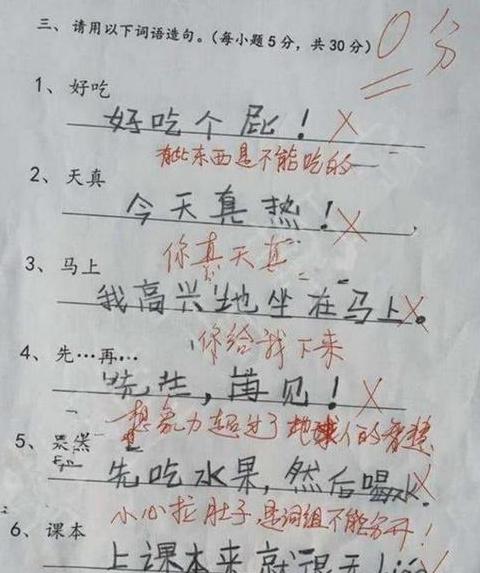 三、请用以下词语造句。(每小题5分，共30分)
0分
1、好吃
好吃个屁！
有些东西是不能吃的
2、天真
今天真热！
你真天真
3、马上
我高兴地坐在马上。
你给我下来
4、先…再…
先生，再见！
想象力超过了地球人的智慧
5、果然
先吃水果，然后喝水。
小心拉肚子，是词组不能分开！
6、课本
上课本来就很无